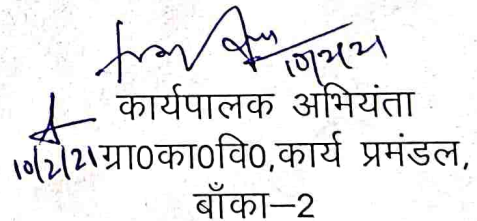 10/2/21
कार्यपालक अभियंता
10/2/21 ग्रा0का0वि0,कार्य प्रमंडल,
बाँका–2